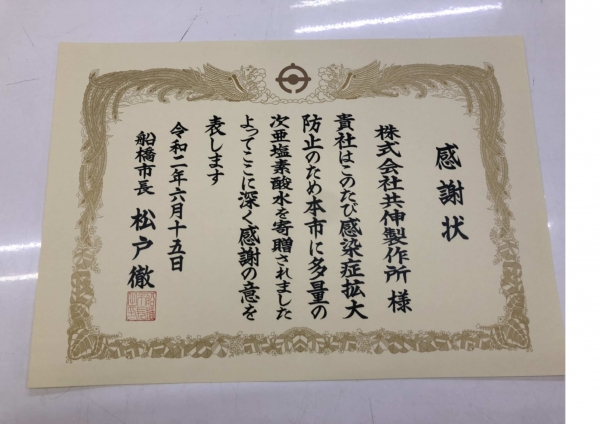 感謝状
株式会社共伸製作所 様
貴社はこのたび感染症拡大
防止のため本市に多量の
次亜塩素酸水を寄贈されました
よってここに深く感謝の意を
表します
令和二年六月十五日
船橋市長 松戸徹